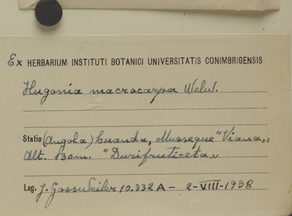 Ex HERBARIUM INSTITUTI BOTANICI UNIVERSITATIS CONIMBRIGENSIS
Hugonia macrocarpa Welw.
Statio (Angola) Luanda, "Musseque" Viana,,
Alt. Bom. "Durifruticeta,,
Leg. J. Gossweiler 10.332A - 2-VIII-1938